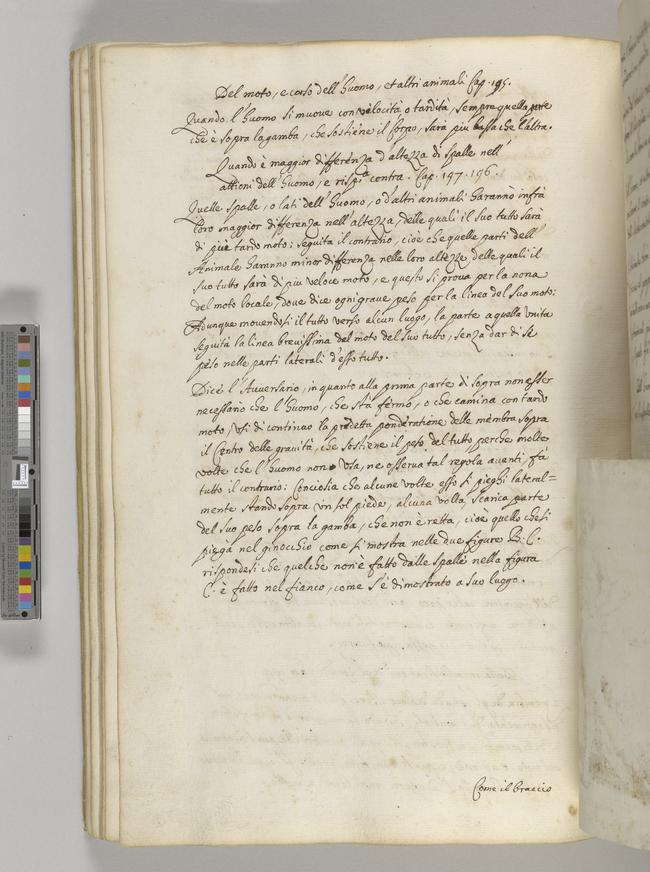 Del moto, e corso dell'huomo, et altri animali Cap. 195.
Quando l'huomo si muove con velocità o tardità, sempre quella parte
che è sopra la gamba, che sostiene il corpo, sarà piu bassa che l'altra.
Quando è maggior differenza d'altezza di spalle nell'
attioni dell'huomo, e risp.ª contra. Cap. 197. 196.
Quelle spalle, o lati dell'huomo, o d'altri animali haranno infrà
loro maggior differenza nell'altezza, delle quali il suo tutto sarà
di più tardo moto; seguita il contrario, cioè che quelle parti dell'
Animale haranno minor differenza nelle loro altezze delle quali il
suo tutto sarà di piu veloce moto, e questo si prova per la nona
del moto locale, dove dice ogni grave pesa per la linea del suo moto:
Adunque movendosi il tutto verso alcun luogo, la parte a quella unita
seguita la linea brevissima del moto del suo tutto, senza dar di se
peso nelle parti laterali d'esso tutto.
Dice l'Avversario, in quanto alla prima parte di sopra non esser
necessario che l'huomo, che sta fermo, o che camina con tardo
moto, usi di continuo la predetta ponderatione delle membra sopra
il Centro della gravità, che sostiene il peso del tutto perche molte
volte che l'huomo non usa, ne osserva tal regola aventi fà
tutto il contrario: Conciosia che alcune volte esso si pieghi lateral=
mente stando sopra un sol piede, alcuna volta scarica parte
del suo peso sopra la gamba, che non è retta, cioè quello che si
piega nel ginocchio come si mostra nelle due figure B. C.
rispondesi che quelche non è fatto dalle spalle nella figura
C. è fatto nel fianco, come s'è dimostrato a suo luogo.
Come il braccio